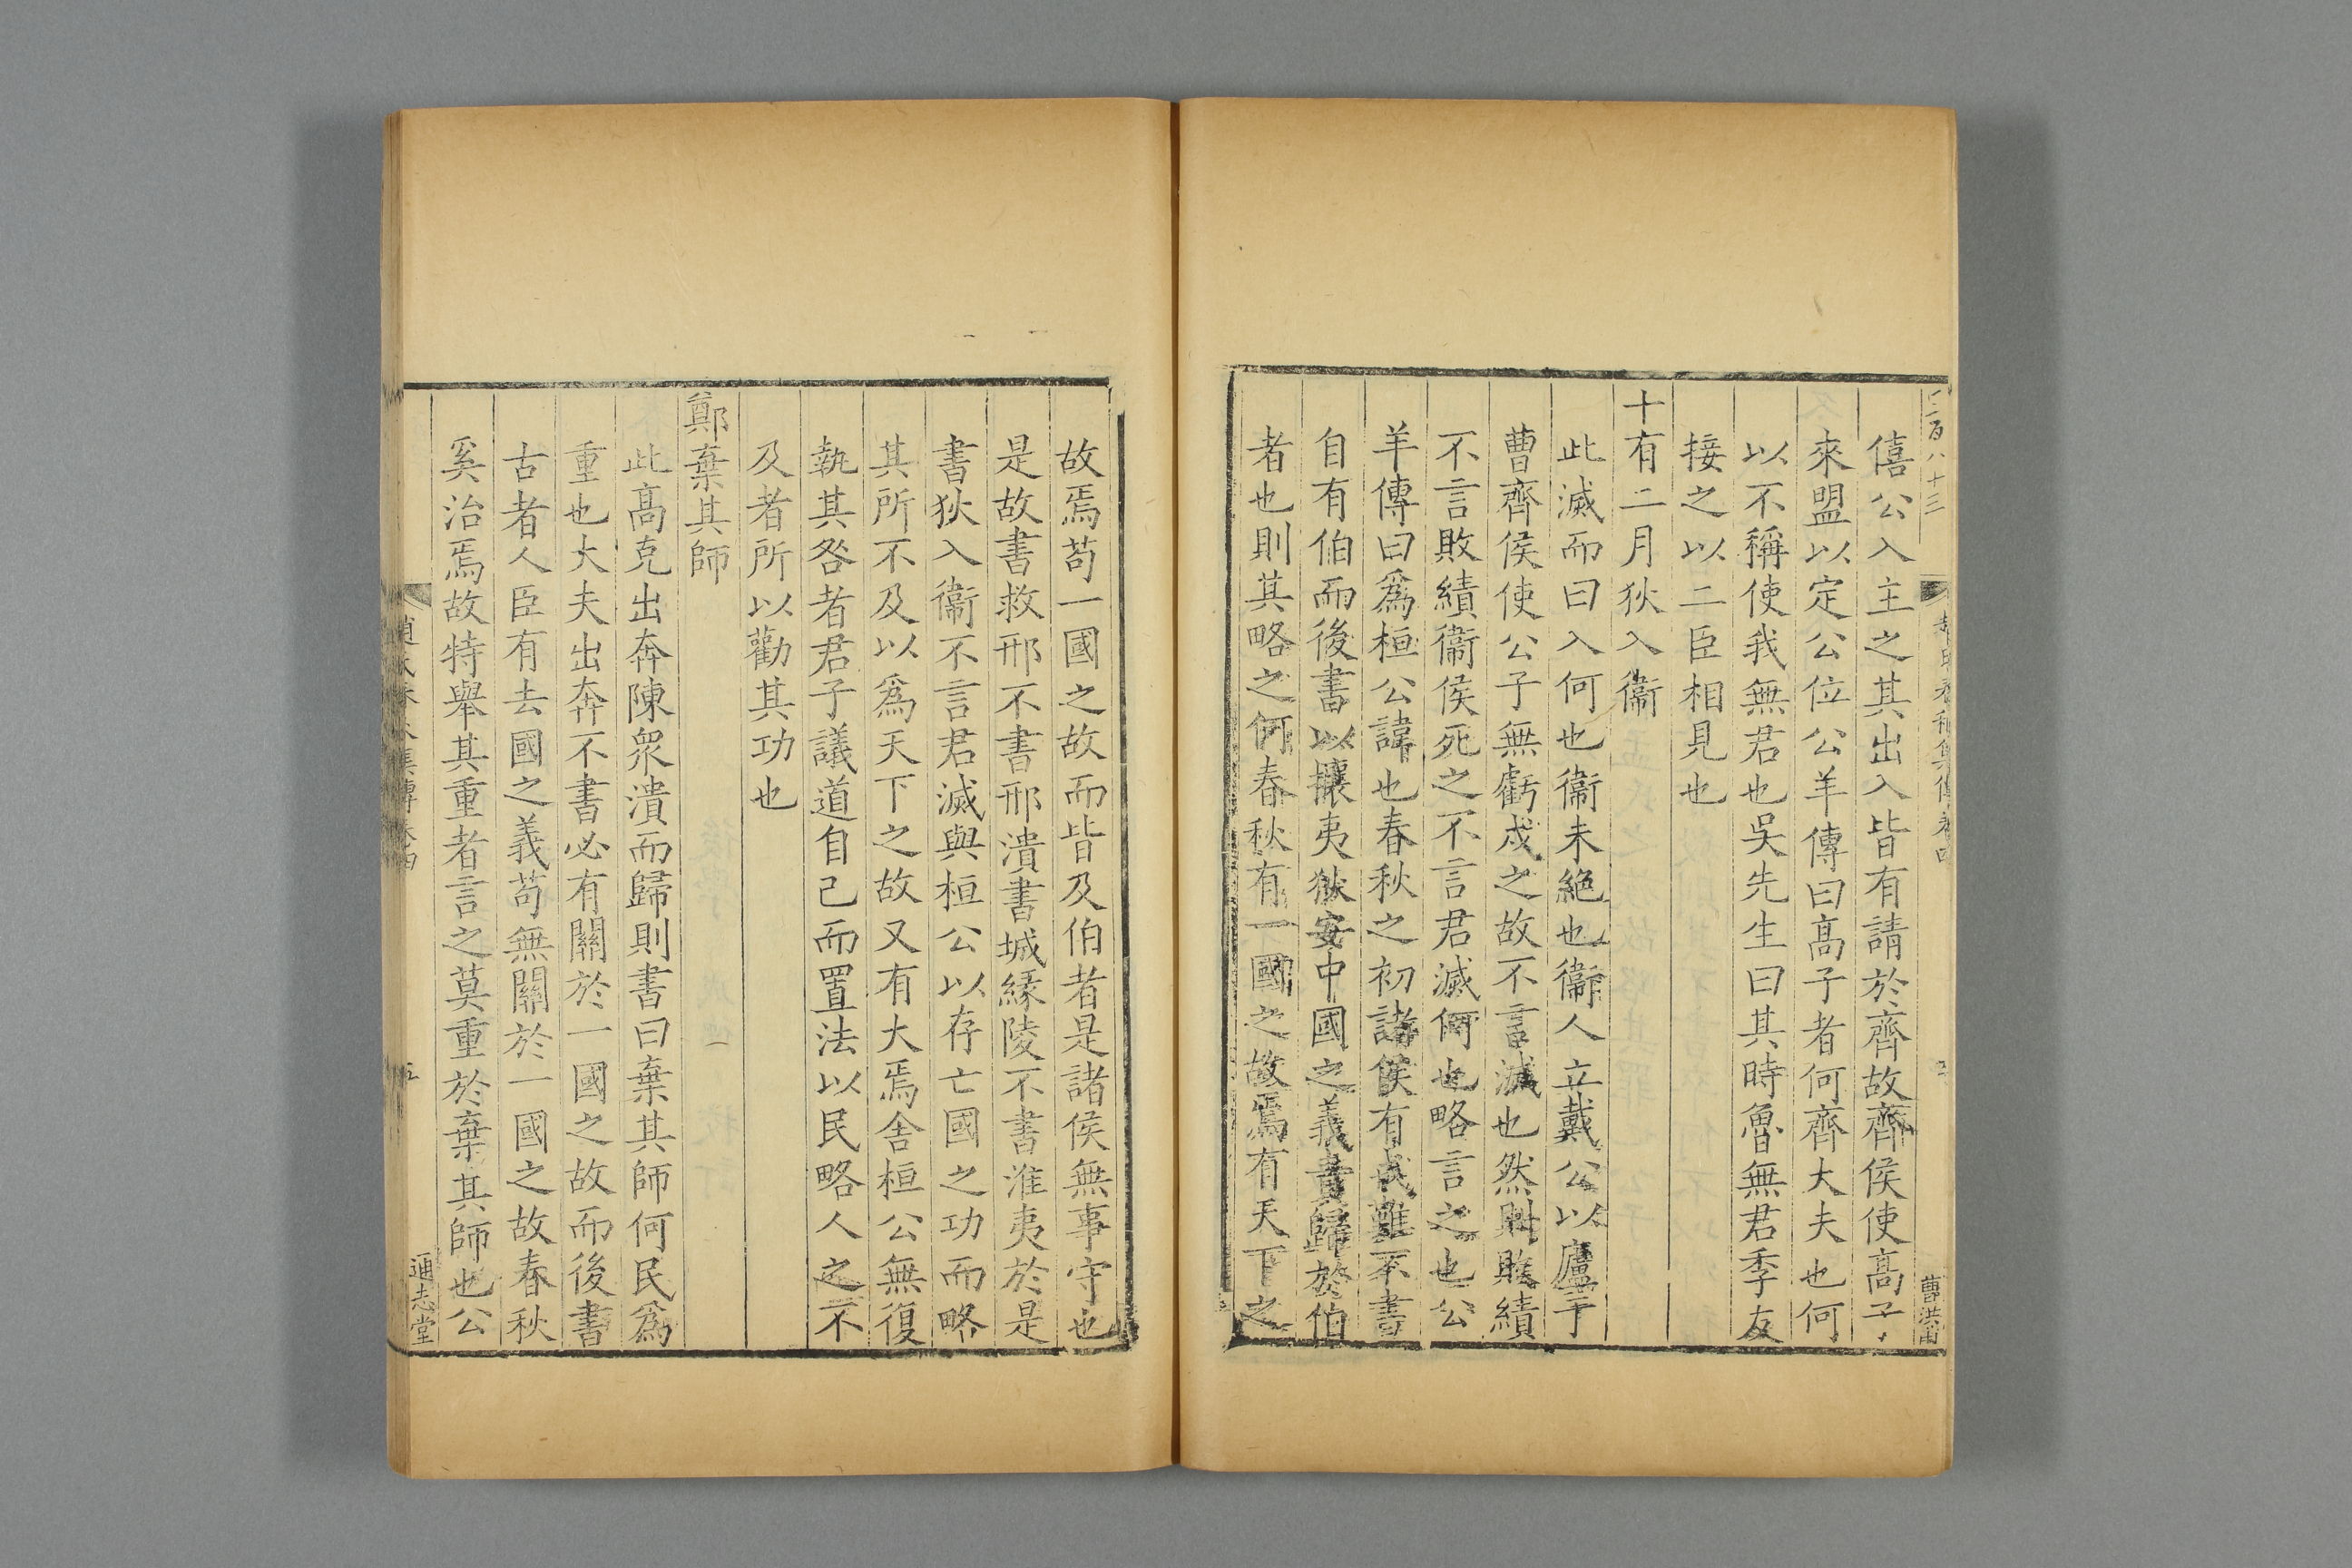 三百八十三
僖公入主之其出入皆有請於齊故齊侯使髙子
來盟以定公位公羊傳曰髙子者何齊大夫也何
以不稱使我無君也吳先生曰其時魯無君季友
接之以二臣相見也
十有二月狄入衞
此滅而曰入何也衞未絶也衞人立戴公以廬于
曹齊侯使公子無虧戍之故不言滅也然則敗績
不言敗績衞侯死之不言君滅何也略言之也公
羊傳曰爲桓公諱也春秋之初諸侯有咸難不書
自有伯而後書以攘夷狄安中國之義責歸於伯
者也則其略之何春秋有一國之故焉有天下之
曹洪甫
故焉苟一國之故而皆及伯者是諸侯無事守也
是故書救邢不書邢潰書城緣陵不書淮夷於是
書狄入衞不言君滅與桓公以存亡國之功而略
其所不及以爲天下之故又有大焉舍桓公無復
執其咎者君子議道自己而置法以民略人之不
及者所以勸其功也
鄭棄其師
此髙克出奔陳衆潰而歸則書曰棄其師何民爲
重也大夫出奔不書必有關於一國之故而後書
古者人臣有去國之義苟無關於一國之故春秋
奚治焉故特舉其重者言之莫重於棄其師也公
趙氏春秋集傳卷四
五
通志堂